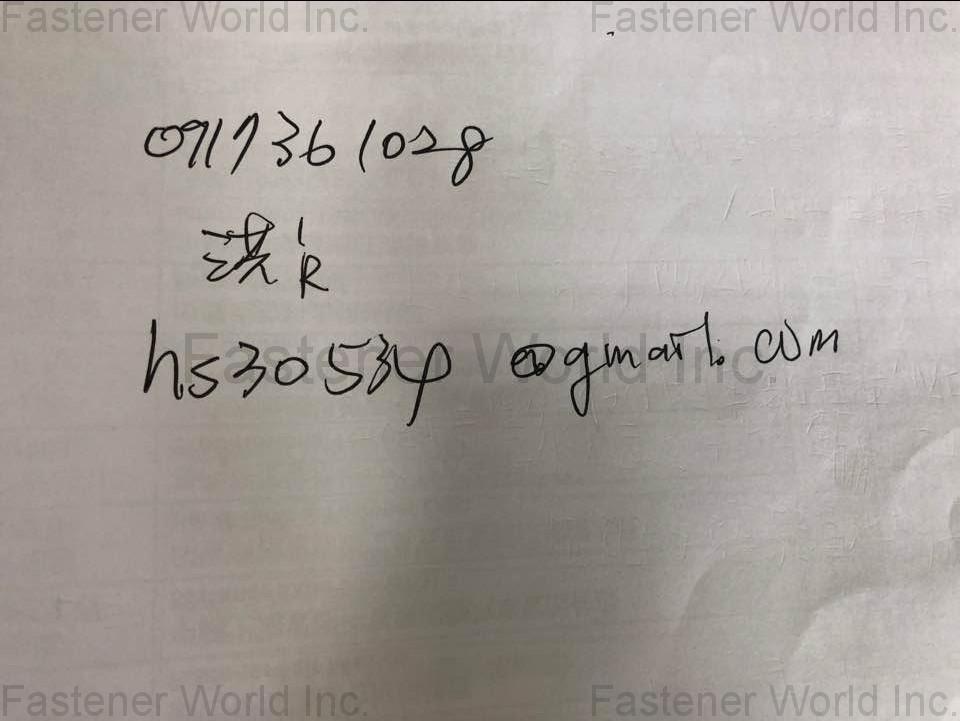 Fastener World Inc. Fastener World Inc.
0917361028
hs30534 @gmail.com
Fastener World Inc.
Fastener World Inc. Fastener World Inc.